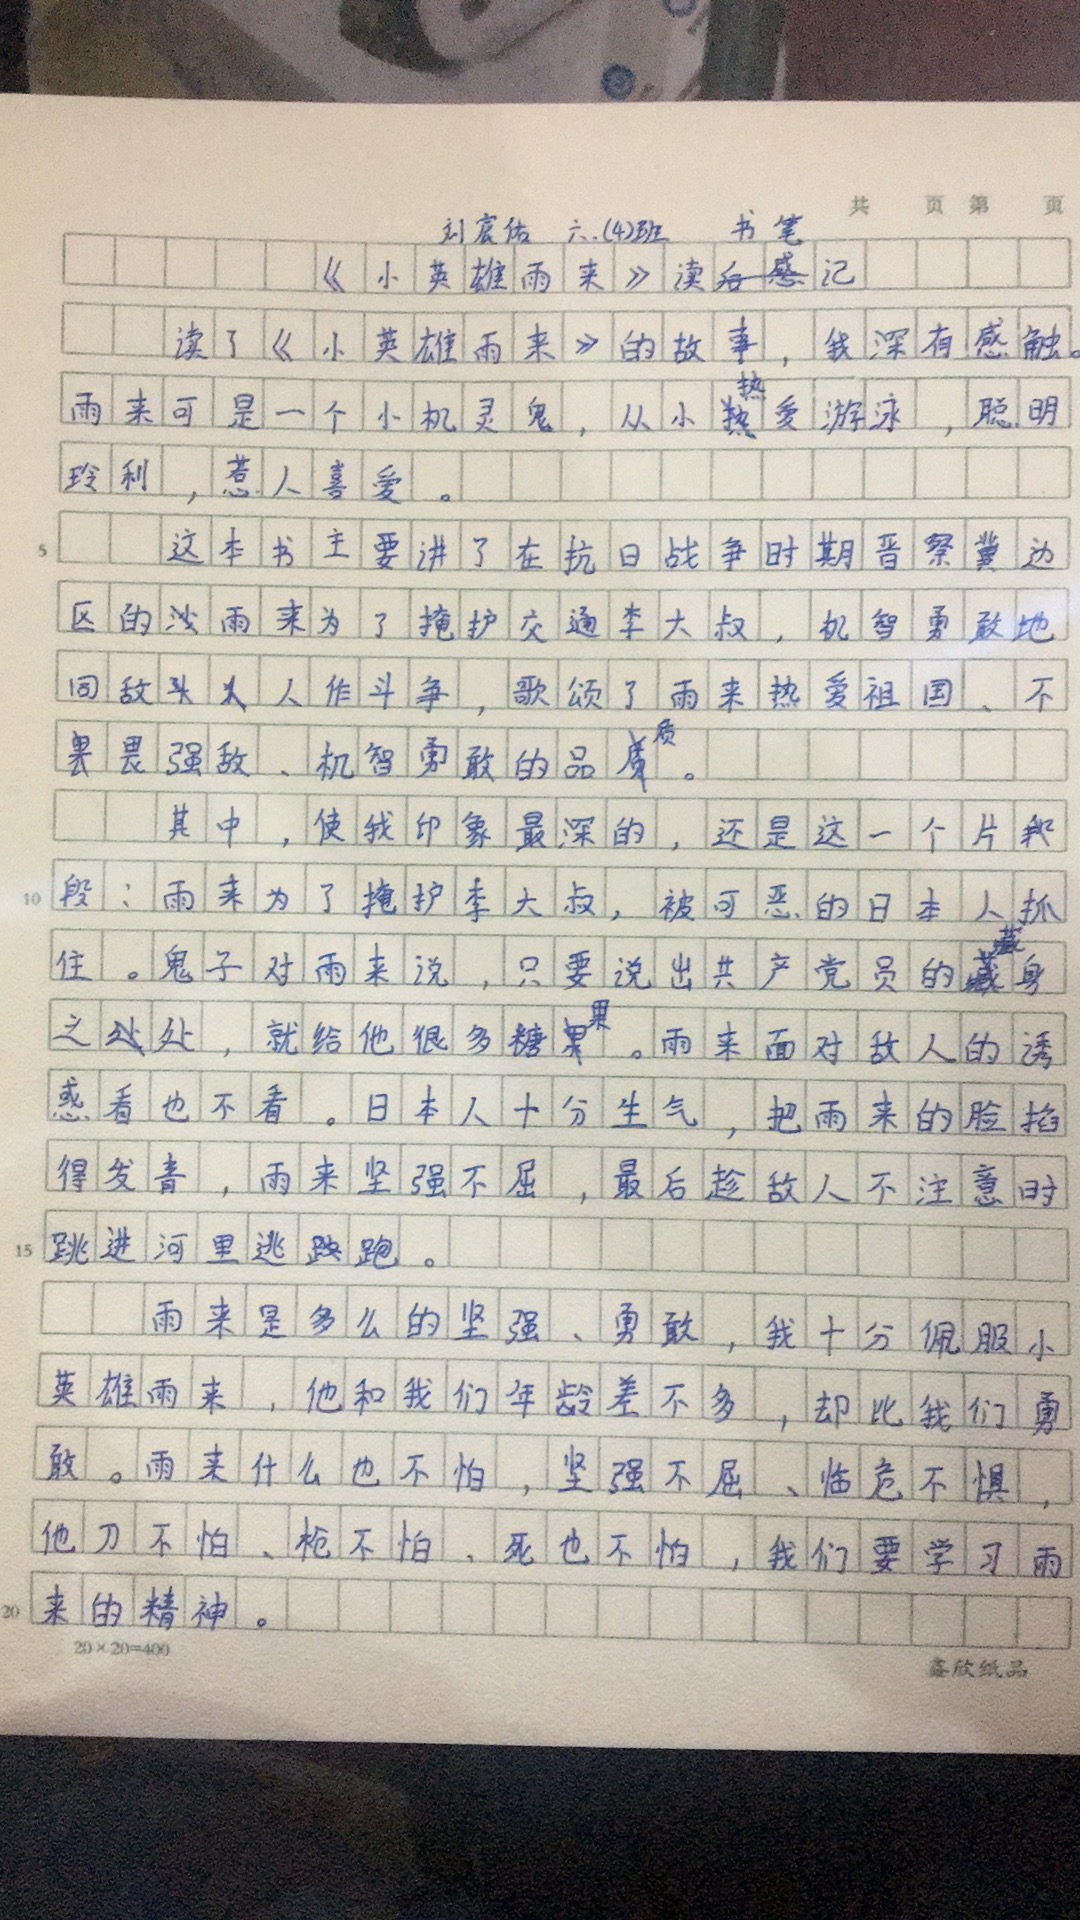 共 页 第 页
刘宸佑 六.(4)班 书笔
《小英雄雨来》读后感记
读了《小英雄雨来》的故事，我深有感触。
雨来可是一个小机灵鬼，从小热爱游泳，聪明
玲利，惹人喜爱。
5 这本书主要讲了在抗日战争时期晋察冀边
区的沙雨来为了掩护交通李大叔，机智勇敢地
同敌头人人作斗争，歌颂了雨来热爱祖国、不
畏畏强敌、机智勇敢的品质。
其中，使我印象最深的，还是这一个片
10 段：雨来为了掩护李大叔，被可恶的日本人抓
住。鬼子对雨来说，只要说出共产党员的藏身
之处处，就给他很多糖果。雨来面对敌人的诱
惑看也不看。日本人十分生气，把雨来的脸掐
得发青，雨来坚强不屈，最后趁敌人不注意时
15 跳进河里逃跑。
雨来是多么的坚强、勇敢，我十分佩服小
英雄雨来，他和我们年龄差不多，却比我们勇
敢。雨来什么也不怕，坚强不屈、临危不惧，
他刀不怕、枪不怕、死也不怕，我们要学习雨
20 来的精神。
20×20=400
鑫欣纸品